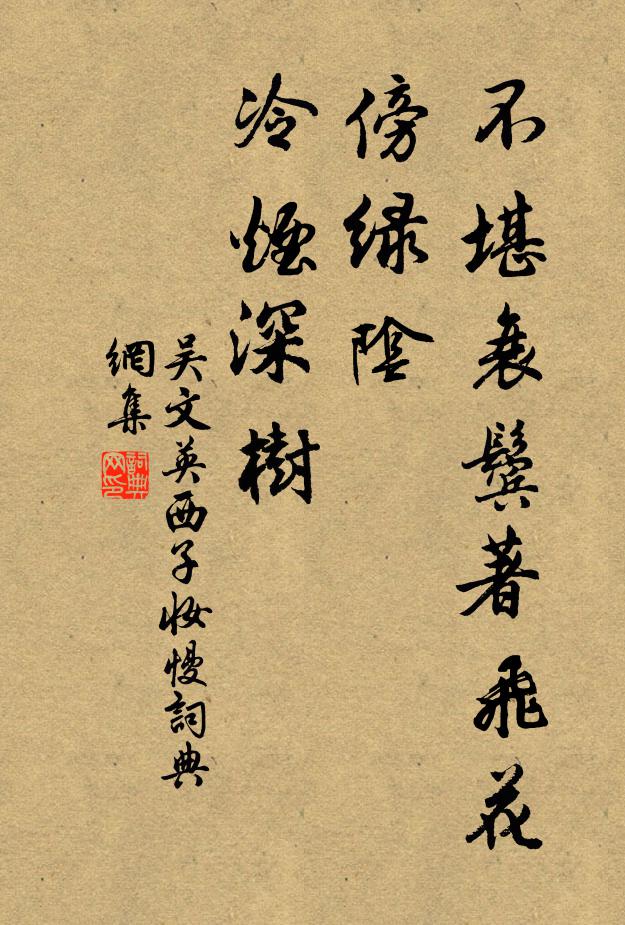 不堪衰鬢著飛花
傍綠陰
冷煙深樹
吴文英西子妝慢詞典
網集
詞典
网印